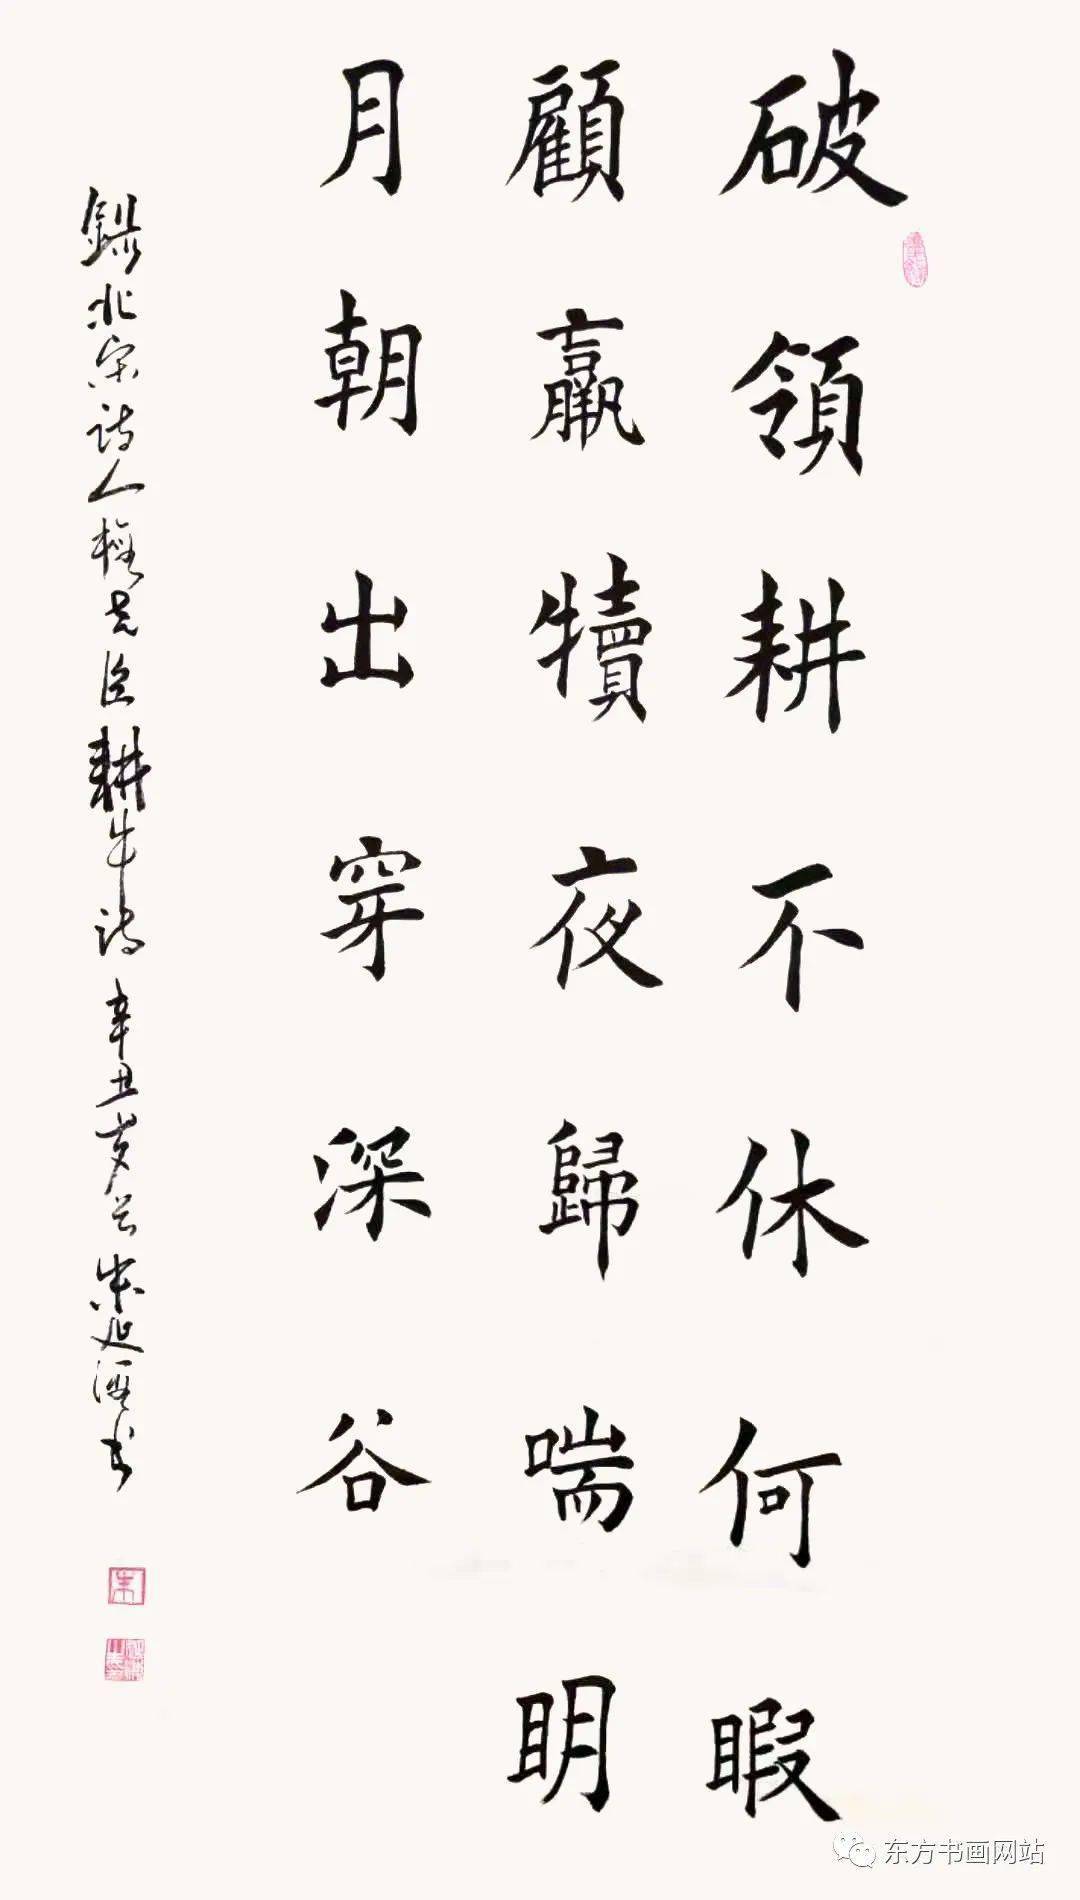 破領耕不休何暇
顧羸犢夜歸喘明
月朝出穿深谷
錄北宋诗人梅尧臣耕牛诗 辛丑岁 朱延海书
朱
东方书画网站